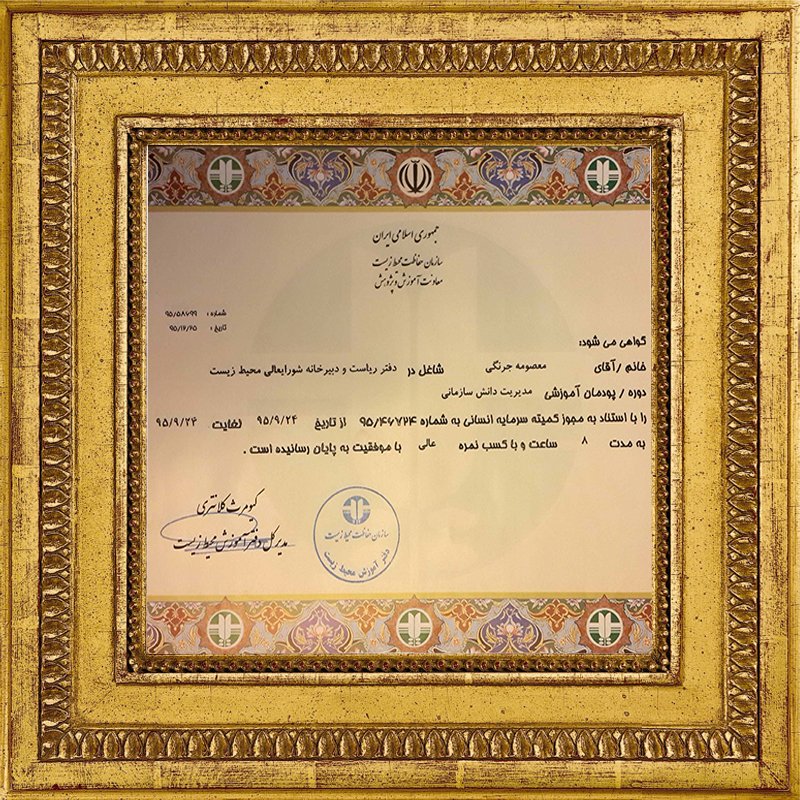 جمهوری اسلامی ایران
سازمان حفاظت محیط زیست
معاونت آموزش و پژوهش
شماره : ۹۵/۵۸۶۹۹
تاریخ :
گواهی می شود:
خانم /آقای معصومه جرنگی شاغل در دفتر ریاست و دبیرخانه شورایعالی محیط زیست
دوره / پودمان آموزشی مدیریت دانش سازمانی
را با استناد به مجوز کمیته سرمایه انسانی به شماره ۹۵/۴۶۷۲۴ از تاریخ ۹۵/۹/۲۴ لغایت ۹۵/۹/۲۴
به مدت ۸ ساعت و با کسب نمره عالی با موفقیت به پایان رسانیده است .
کیومرث کلانتری
مدیر کل دفتر آموزش محیط زیست
سازمان حفاظت محیط زیست
دفتر آموزش محیط زیست